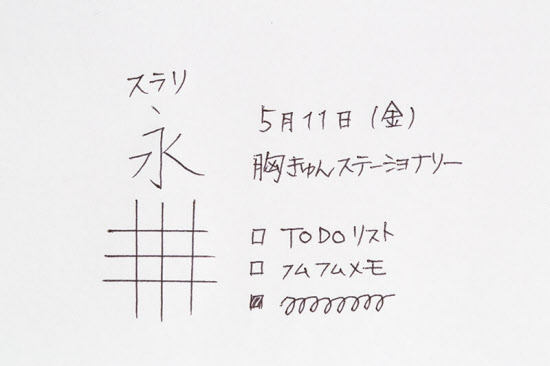 スラリ
永
5月11日(金)
胸きゅんステーショナリー
□ TODOリスト
□ フムフムメモ
■